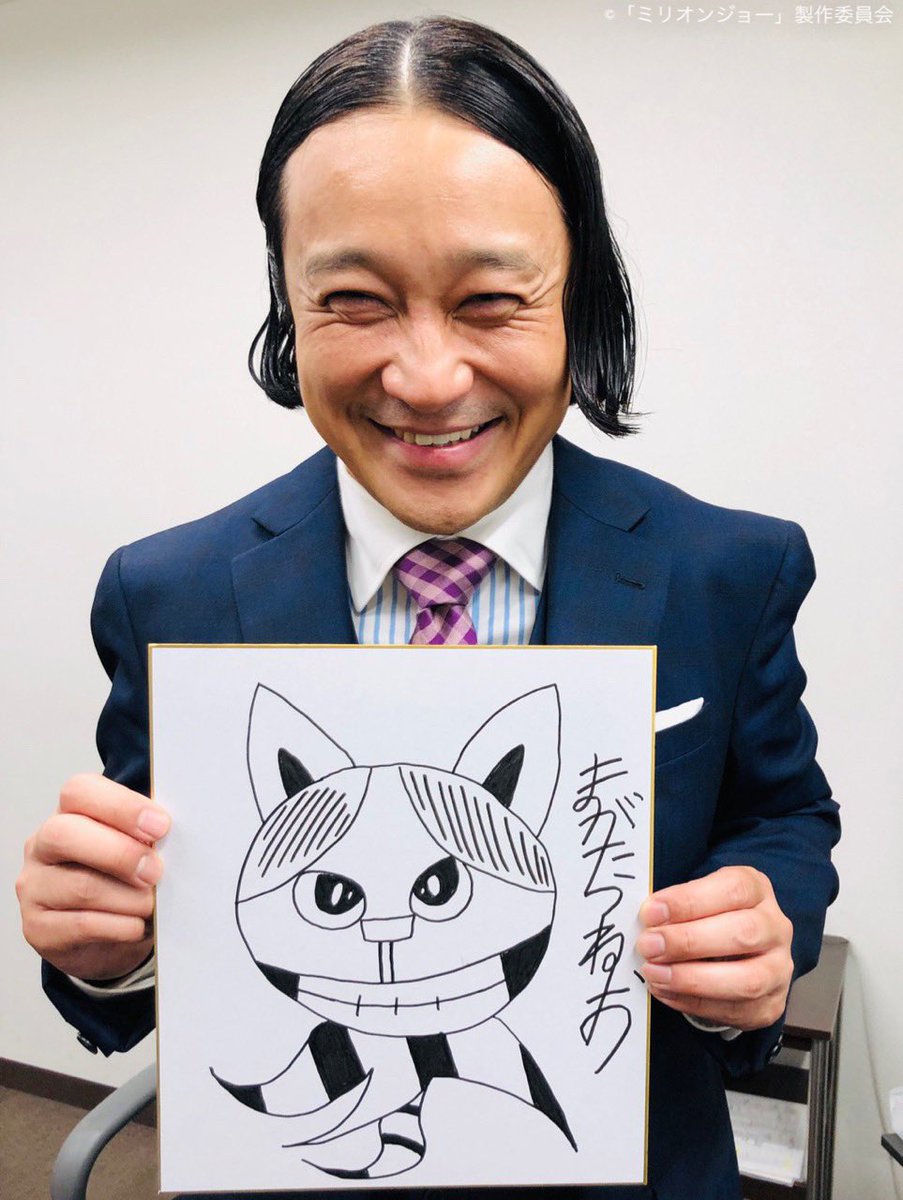 ©「ミリオンジョー」製作委員会
まがたつねお